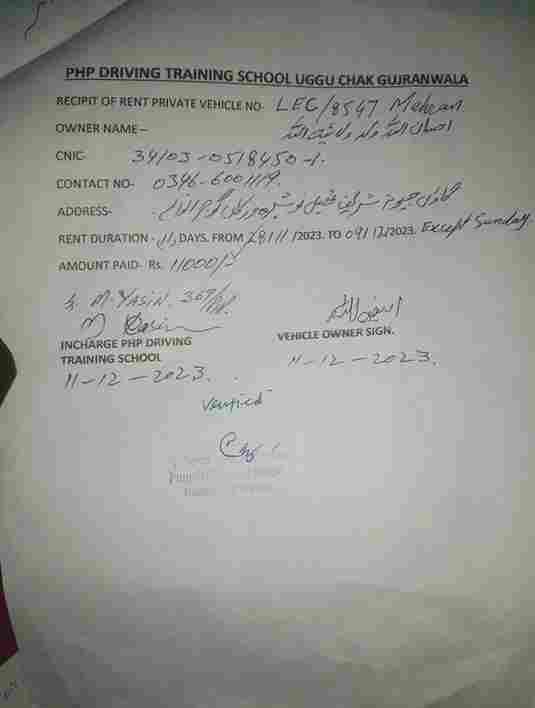 PHP DRIVING TRAINING SCHOOL UGGU CHAK GUJRANWALA
RECIPIT OF RENT PRIVATE VEHICLE NO- LEC/8547 Mehran
OWNER NAME – احسان اللہ ولد
CNIC- 34103-0518450-1.
CONTACT NO- 0346-6001119.
ADDRESS-
RENT DURATION - 11, DAYS. FROM 28/11/2023. TO 09/12/2023. Except Sunday.
AMOUNT PAID- Rs. 11000/-
M. YASIN. 367/
M Yasin
INCHARGE PHP DRIVING
TRAINING SCHOOL
11-12-2023.
VEHICLE OWNER SIGN.
11-12-2023.
Verified